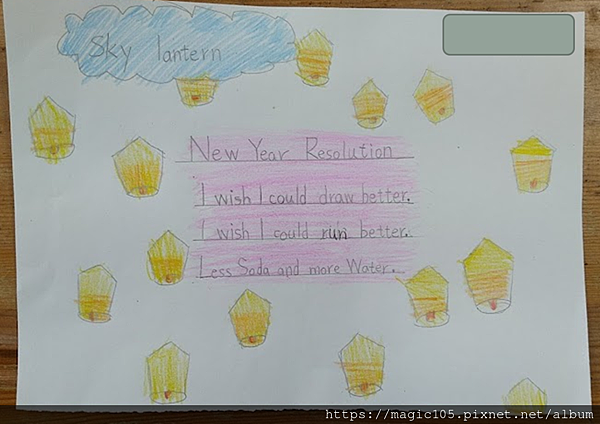 Sky lantern
New Year Resolution
I wish I could draw better.
I wish I could run better.
Less Soda and more Water.
https://magic105.pixnet.net/album